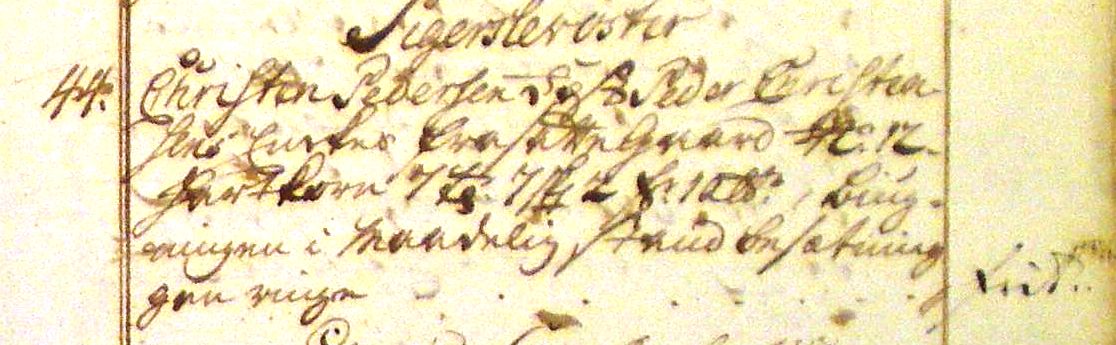 Sigerslevøster
44. Christen Pedersen Fæst Peder Christen-
sens Enkes fra satte Gaard No. 12.
Hartkorn 7 td. 7 skp 2 fr. 1 alb., Bŭg-
ningen i maadelig stand besætning
gen ringe